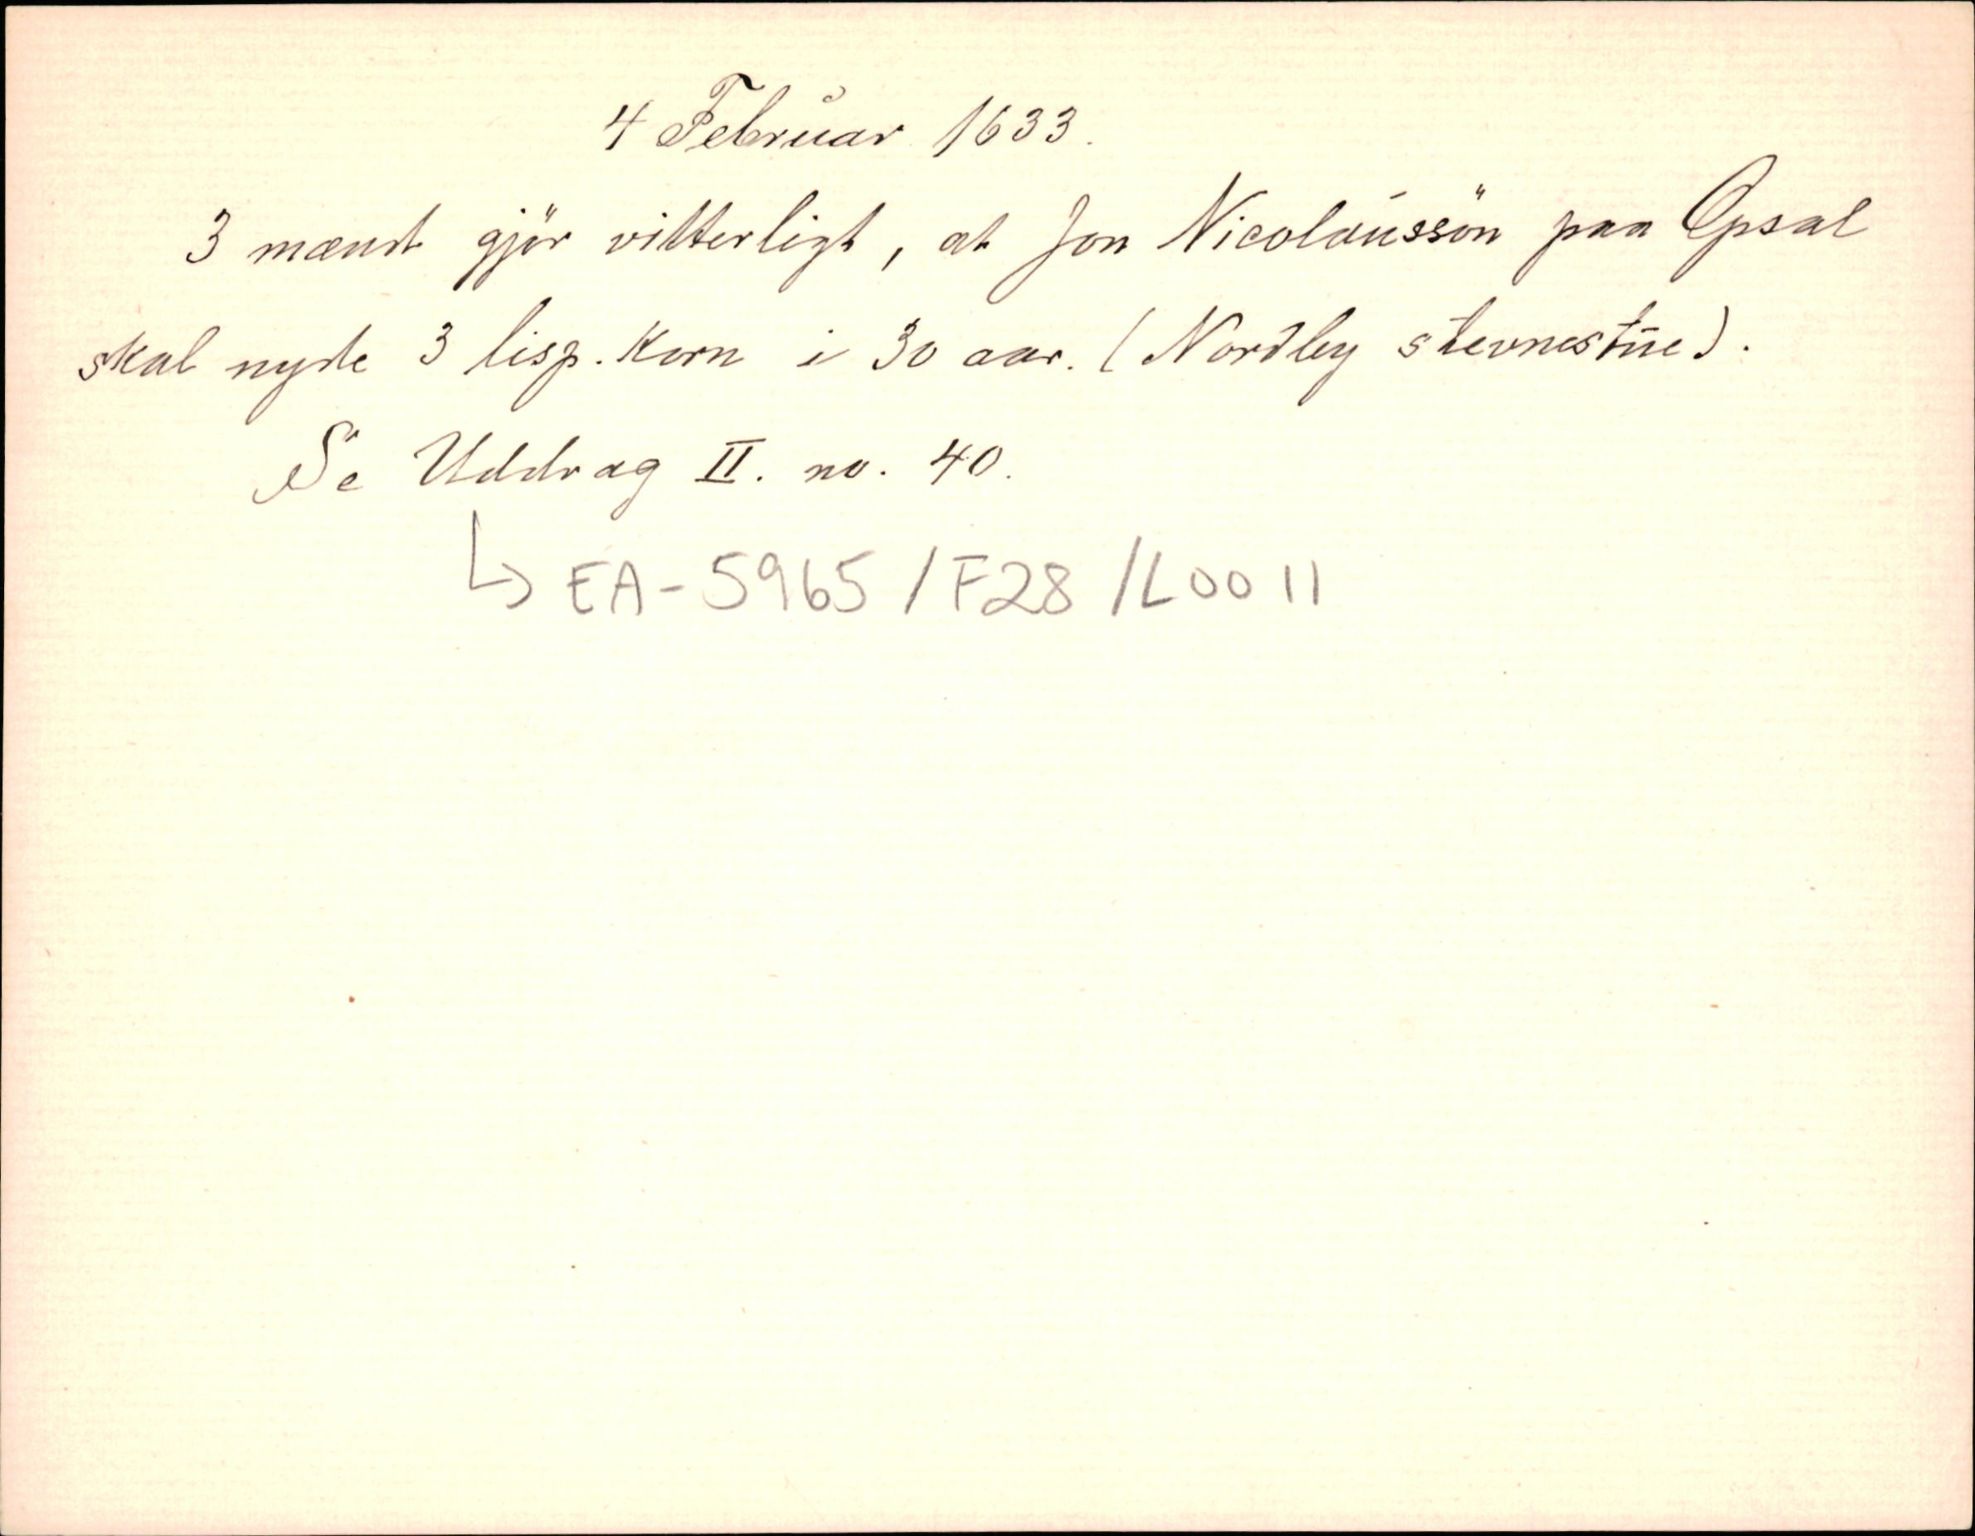 4 Februar 1633.
3 mænd gjør vitterligt, at Jon Nicolaussön paa Opsal
skal nyde 3 lisp. Korn i 30 aar. (Nordby stevnestue).
Se Uddrag II. no. 40.
↳ EA-5965/F28/L0011